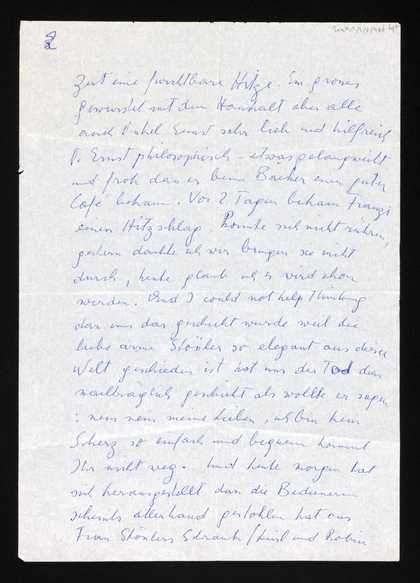 2
Zeit eine furchtbare Hitze. Ein grosses
gewurstel mit dem Haushalt aber alle
auch Onkel Ernst sehr lieb und hilfreich
O. Ernst philosophisch – etwas gelangweilt
und froh dass er beim Bäcker einen guten
Café bekam. Vor 2 Tagen bekam Franzi
einen Hitzschlag. Konnte sich nicht rühren,
gestern dachte ich wir bringen sie nicht
durch, heute glaub ich es wird schon
werden. And I could not help thinking
dass uns das geschickt wurde weil die
liebe arme Stönker so elegant aus dieser
Welt geschieden ist hat uns der Tod das
nachträglich geschickt als wollte er sagen
: nein nein meine Lieben, ich bin kein
Scherz so einfach und bequem kommt
Ihr nicht weg. Und heute morgen hat
sich herausgestellt dass die Bedienerin
scheints allerhand gestohlen hat aus
Frau Stönkers Schrank / und Robin